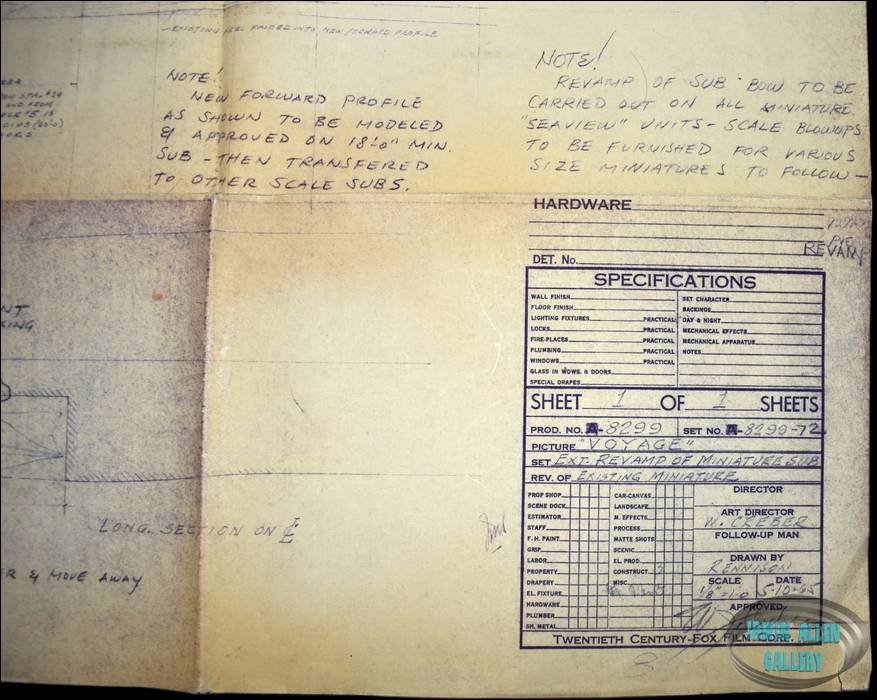 EXISTING KEEL FAIRED INTO NEW FORWARD PROFILE
NOTE!
NEW FORWARD PROFILE
AS SHOWN TO BE MODELED
& APPROVED ON 18'-0" MIN.
SUB - THEN TRANSFERED
TO OTHER SCALE SUBS.
NOTE!
REVAMP OF SUB BOW TO BE
CARRIED OUT ON ALL MINIATURE
"SEAVIEW" UNITS - SCALE BLOWUPS
TO BE FURNISHED FOR VARIOUS
SIZE MINIATURES TO FOLLOW -
AND FROM
HARDWARE
REVAMP
DET. No.
SPECIFICATIONS
WALL FINISH
FLOOR FINISH
LIGHTING FIXTURES PRACTICAL
LOCKS PRACTICAL
FIRE-PLACES PRACTICAL
PLUMBING PRACTICAL
WINDOWS PRACTICAL
GLASS IN WDWS. & DOORS
SPECIAL DRAPES
SET CHARACTER
BACKINGS
DAY & NIGHT
MECHANICAL EFFECTS
MECHANICAL APPARATUS
NOTES
SHEET 1 OF 1 SHEETS
PROD. NO. A-8299 SET NO. A-8299-72
PICTURE "VOYAGE"
SET EXT. REVAMP OF MINIATURE SUB
REV. OF EXISTING MINIATURE
PROP SHOP
SCENE DOCK
ESTIMATOR
STAFF
F. H. PAINT
GRIP
LABOR
PROPERTY
DRAPERY
EL. FIXTURE
HARDWARE
PLUMBER
SH. METAL
CAR-CANVAS
LANDSCAPE
M. EFFECTS
PROCESS
MATTE SHOTS
SCENIC
EL. PROD.
CONSTRUCT. 3
MISC.
DIRECTOR
ART DIRECTOR
W. CREBER
FOLLOW-UP MAN
DRAWN BY
RENNISON
SCALE DATE
1/8"=1-0 5-10-65
APPROVED
TWENTIETH CENTURY-FOX FILM CORP.
NT
KING
LONG. SECTION ON ℄
ER & MOVE AWAY
IRWIN ALLEN
GALLERY